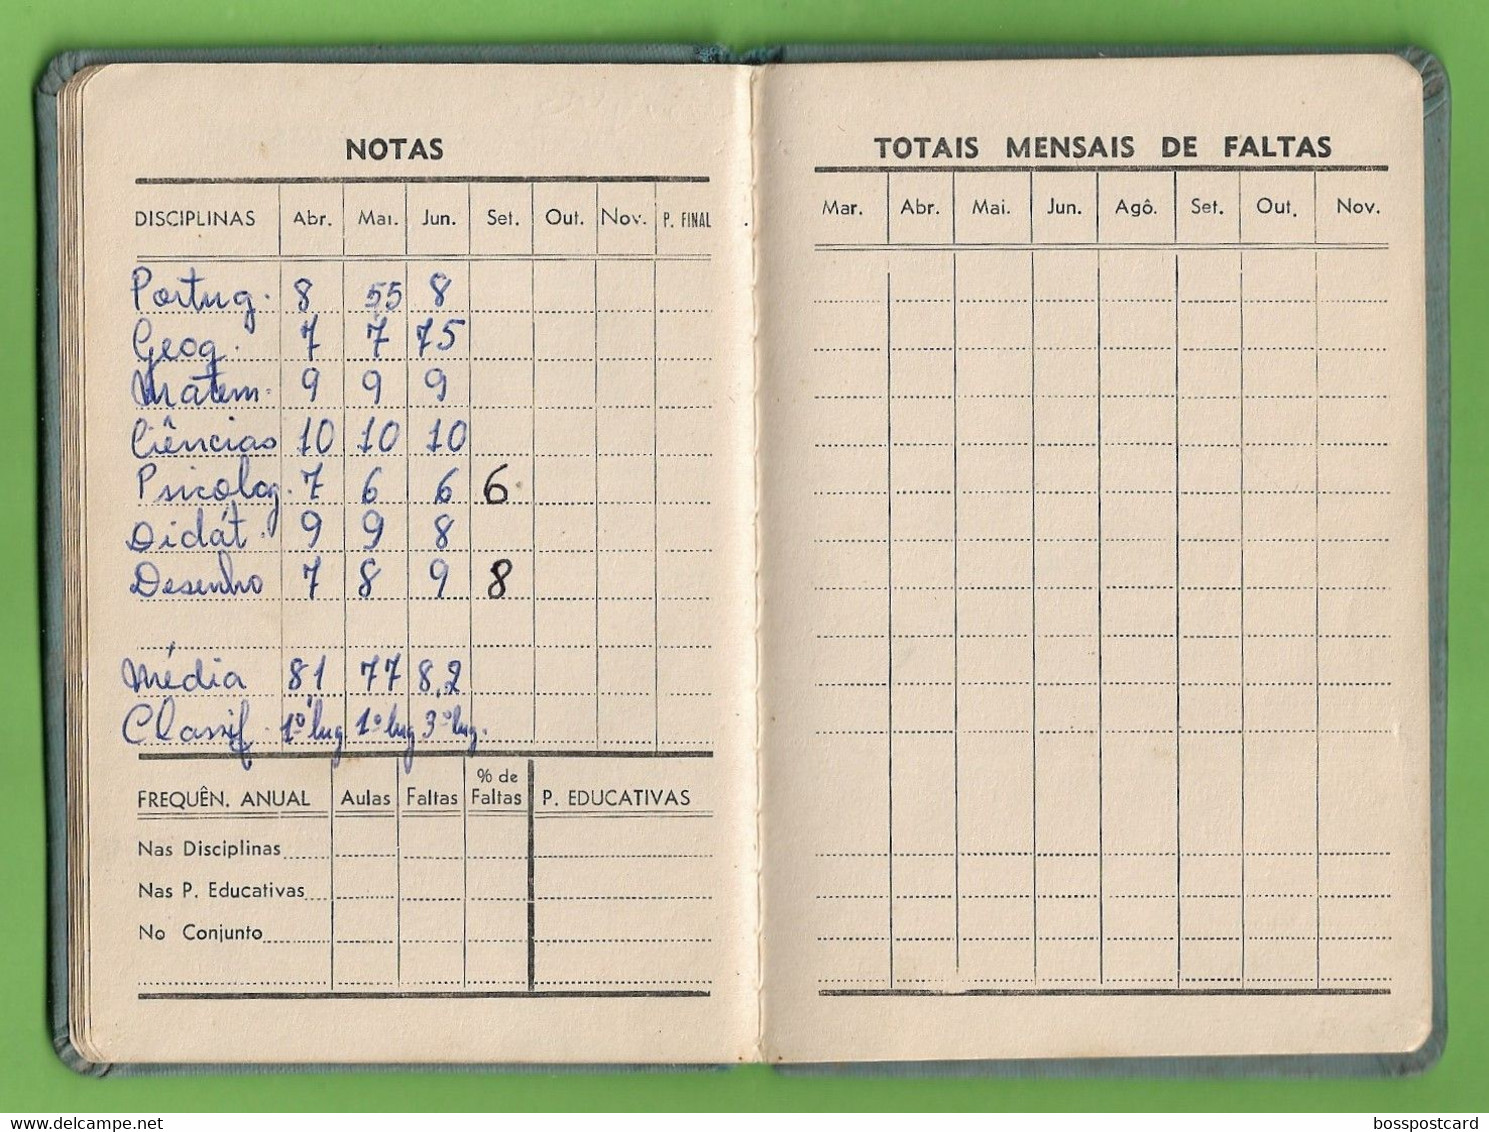 NOTAS
DISCIPLINAS Abr. Mai. Jun. Set. Out. Nov. P. FINAL
Portug. 8 55 8
Geog. 7 7 75
Matem. 9 9 9
Ciências 10 10 10
Psicolog. 7 6 6 6
Didát. 9 9 8
Desenho 7 8 9 8
Média 81 77 8,2
Classif. 1º lug 1º lug 3º lug.
FREQUÊN. ANUAL Aulas Faltas % de Faltas P. EDUCATIVAS
Nas Disciplinas
Nas P. Educativas
No Conjunto
TOTAIS MENSAIS DE FALTAS
Mar. Abr. Mai. Jun. Agô. Set. Out. Nov.
bosspostcard